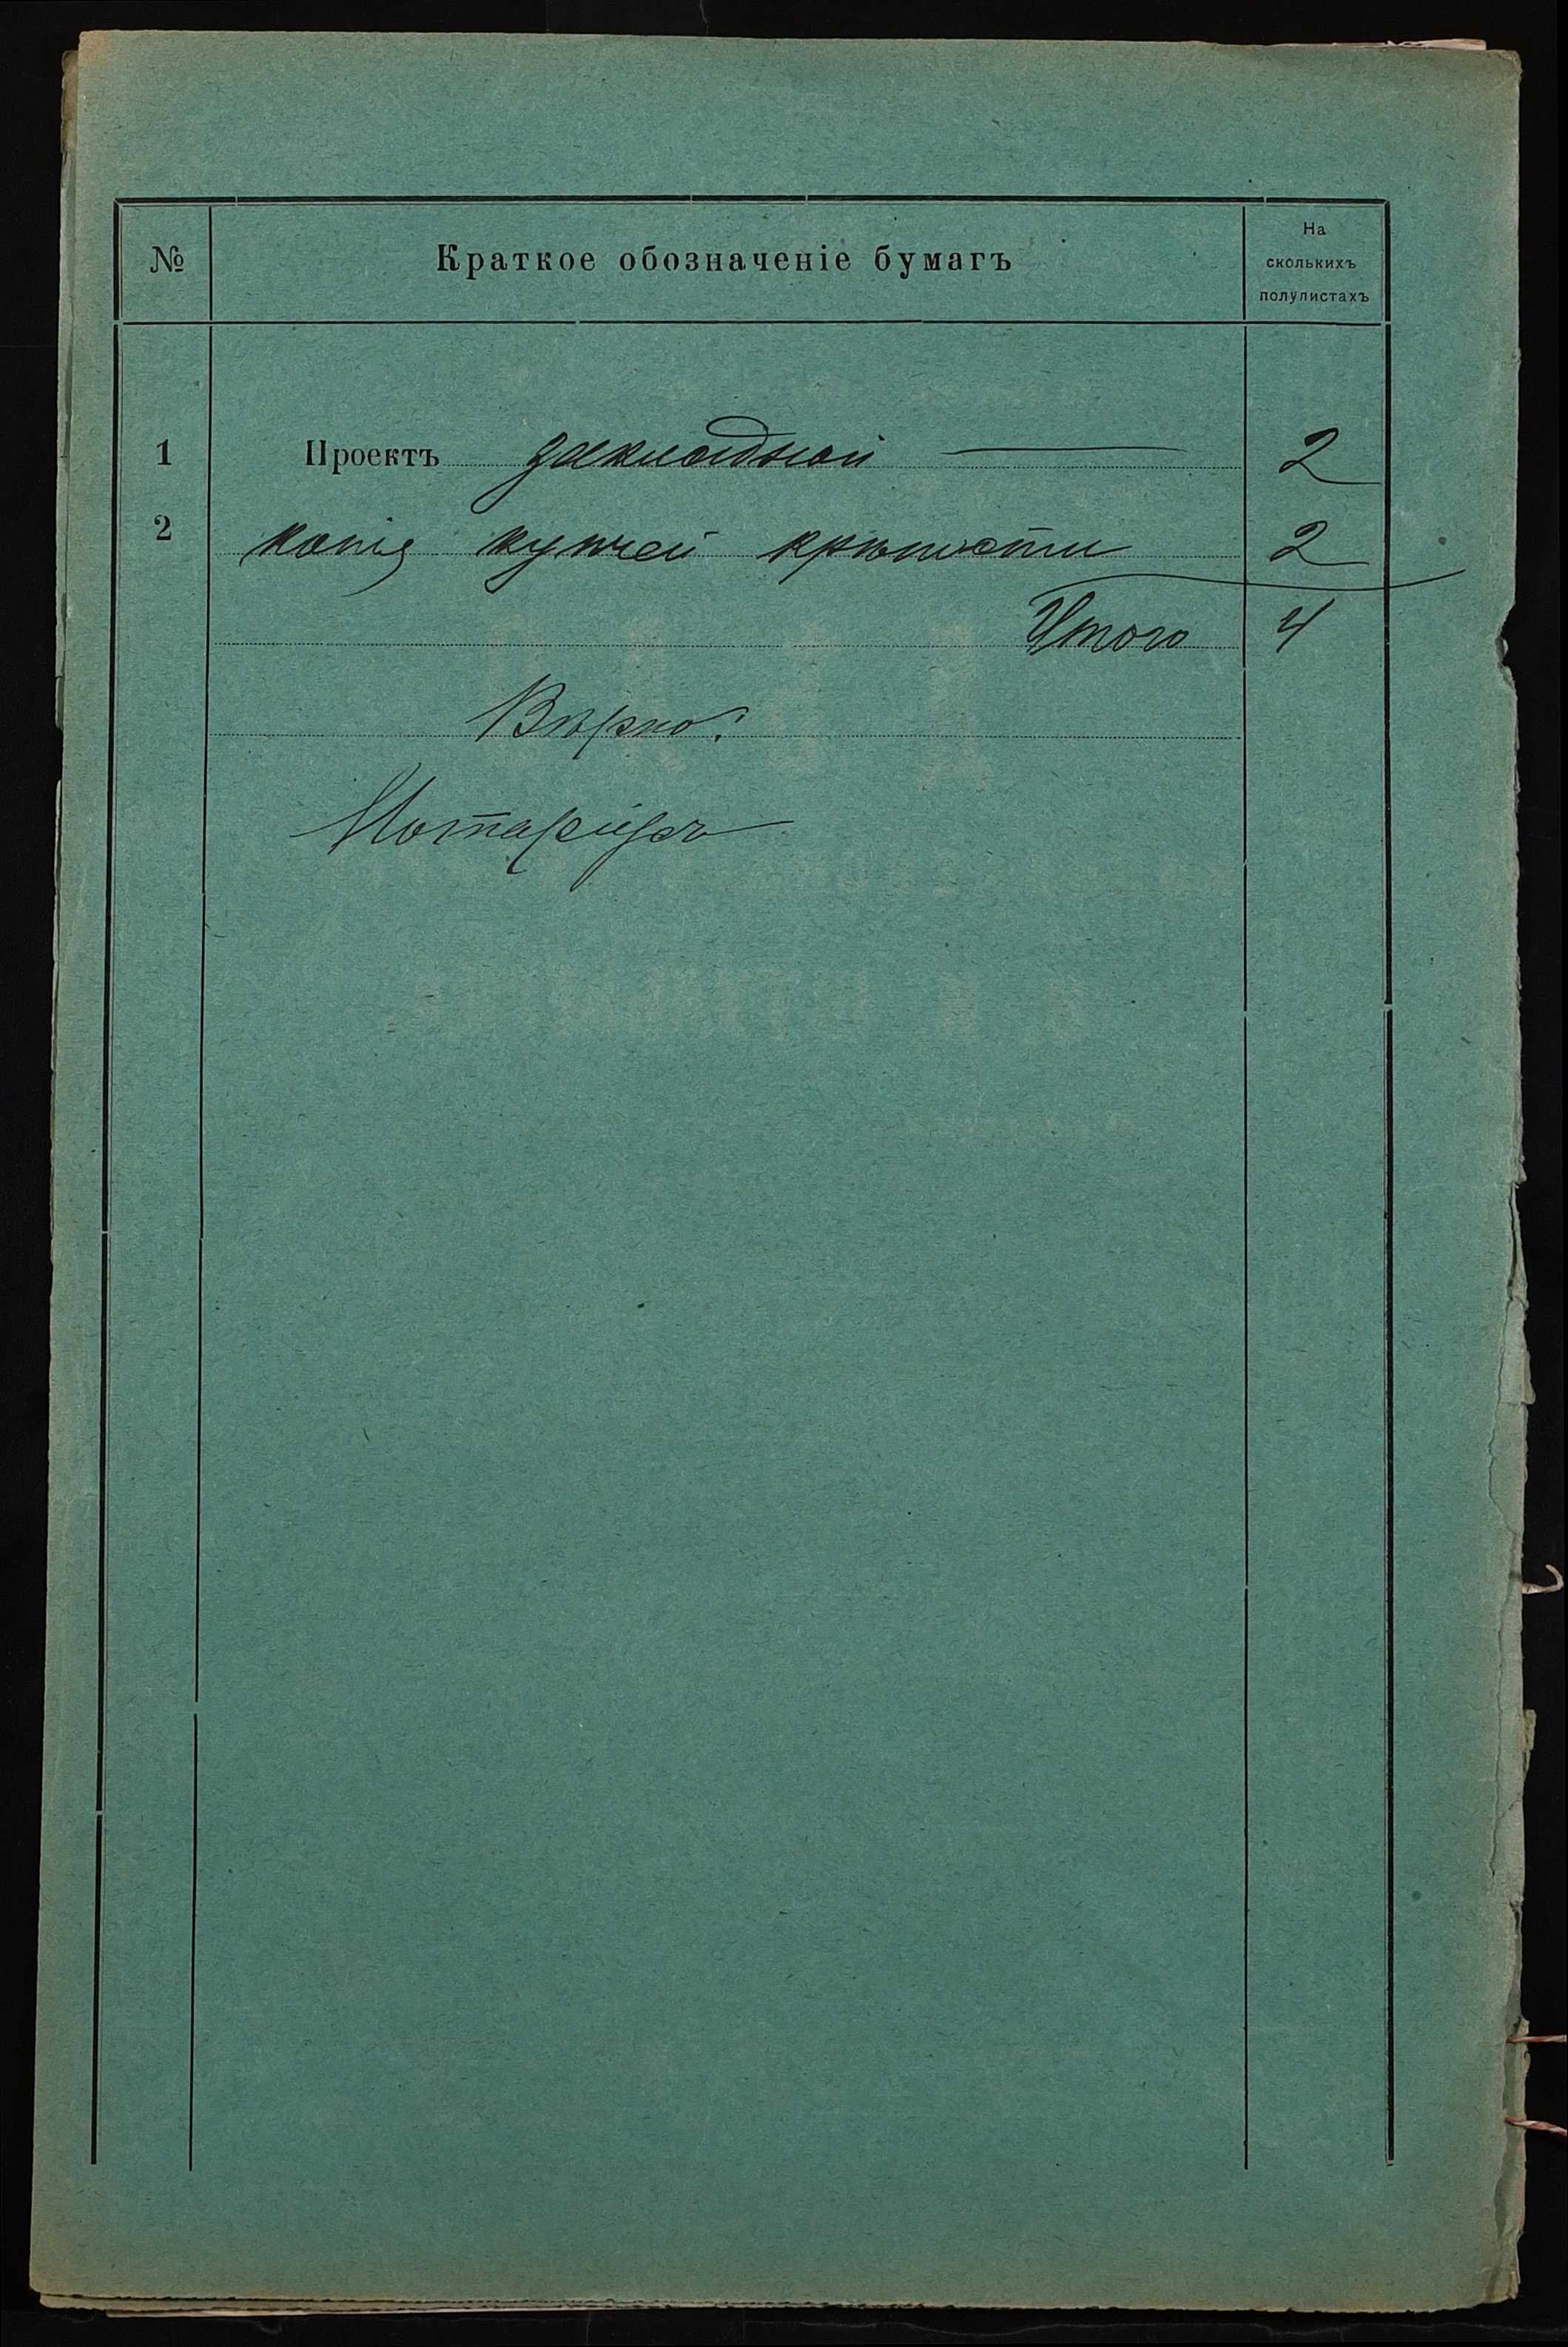 № Краткое обозначеніе бумагъ На сколькихъ полулистахъ
1 Проектъ закладной — 2
2 копія купчей крѣпости 2
Итого 4
Вѣрно:
Нотаріусъ